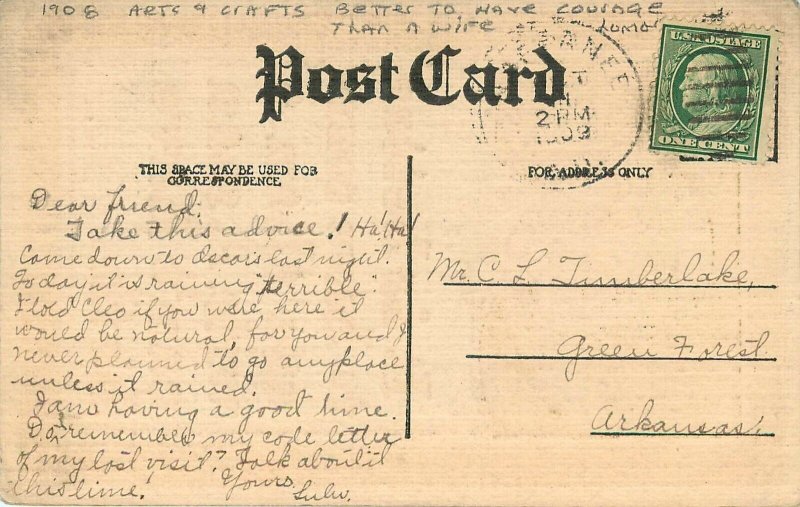 1908 ARTS & CRAFTS BETTER TO HAVE COURAGE
THAN A WIFE
Post Card
U.S. POSTAGE
ONE CENT
2 PM
1909
THIS SPACE MAY BE USED FOR
CORRESPONDENCE
FOR ADDRESS ONLY
Dear friend:
Take this advice! Ha! Ha!
Come down to Oscar's last night.
Today it is raining "terrible".
I told Cleo if you were here it
would be natural, for you and I
never planned to go anyplace
unless it rained.
I am having a good time.
Do, remember my code letter
of my last visit? Talk about it
this time.
Yours
Lulu.
Mr. C. L. Timberlake,
Green Forest
Arkansas.